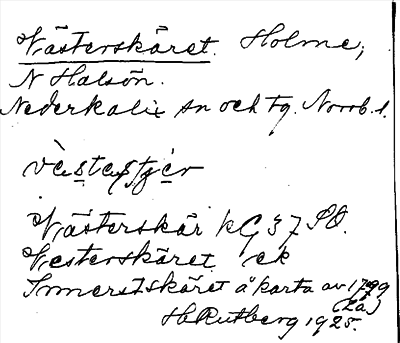 Västerskäret. Holme;
N Halsön.
Nederkalix sn och tg. Norrb. l.
Västerskär kG 37 SO.
Vesterskäret ek
Inmerstskäret å karta av 1799
(La)
H Rutberg 1925.